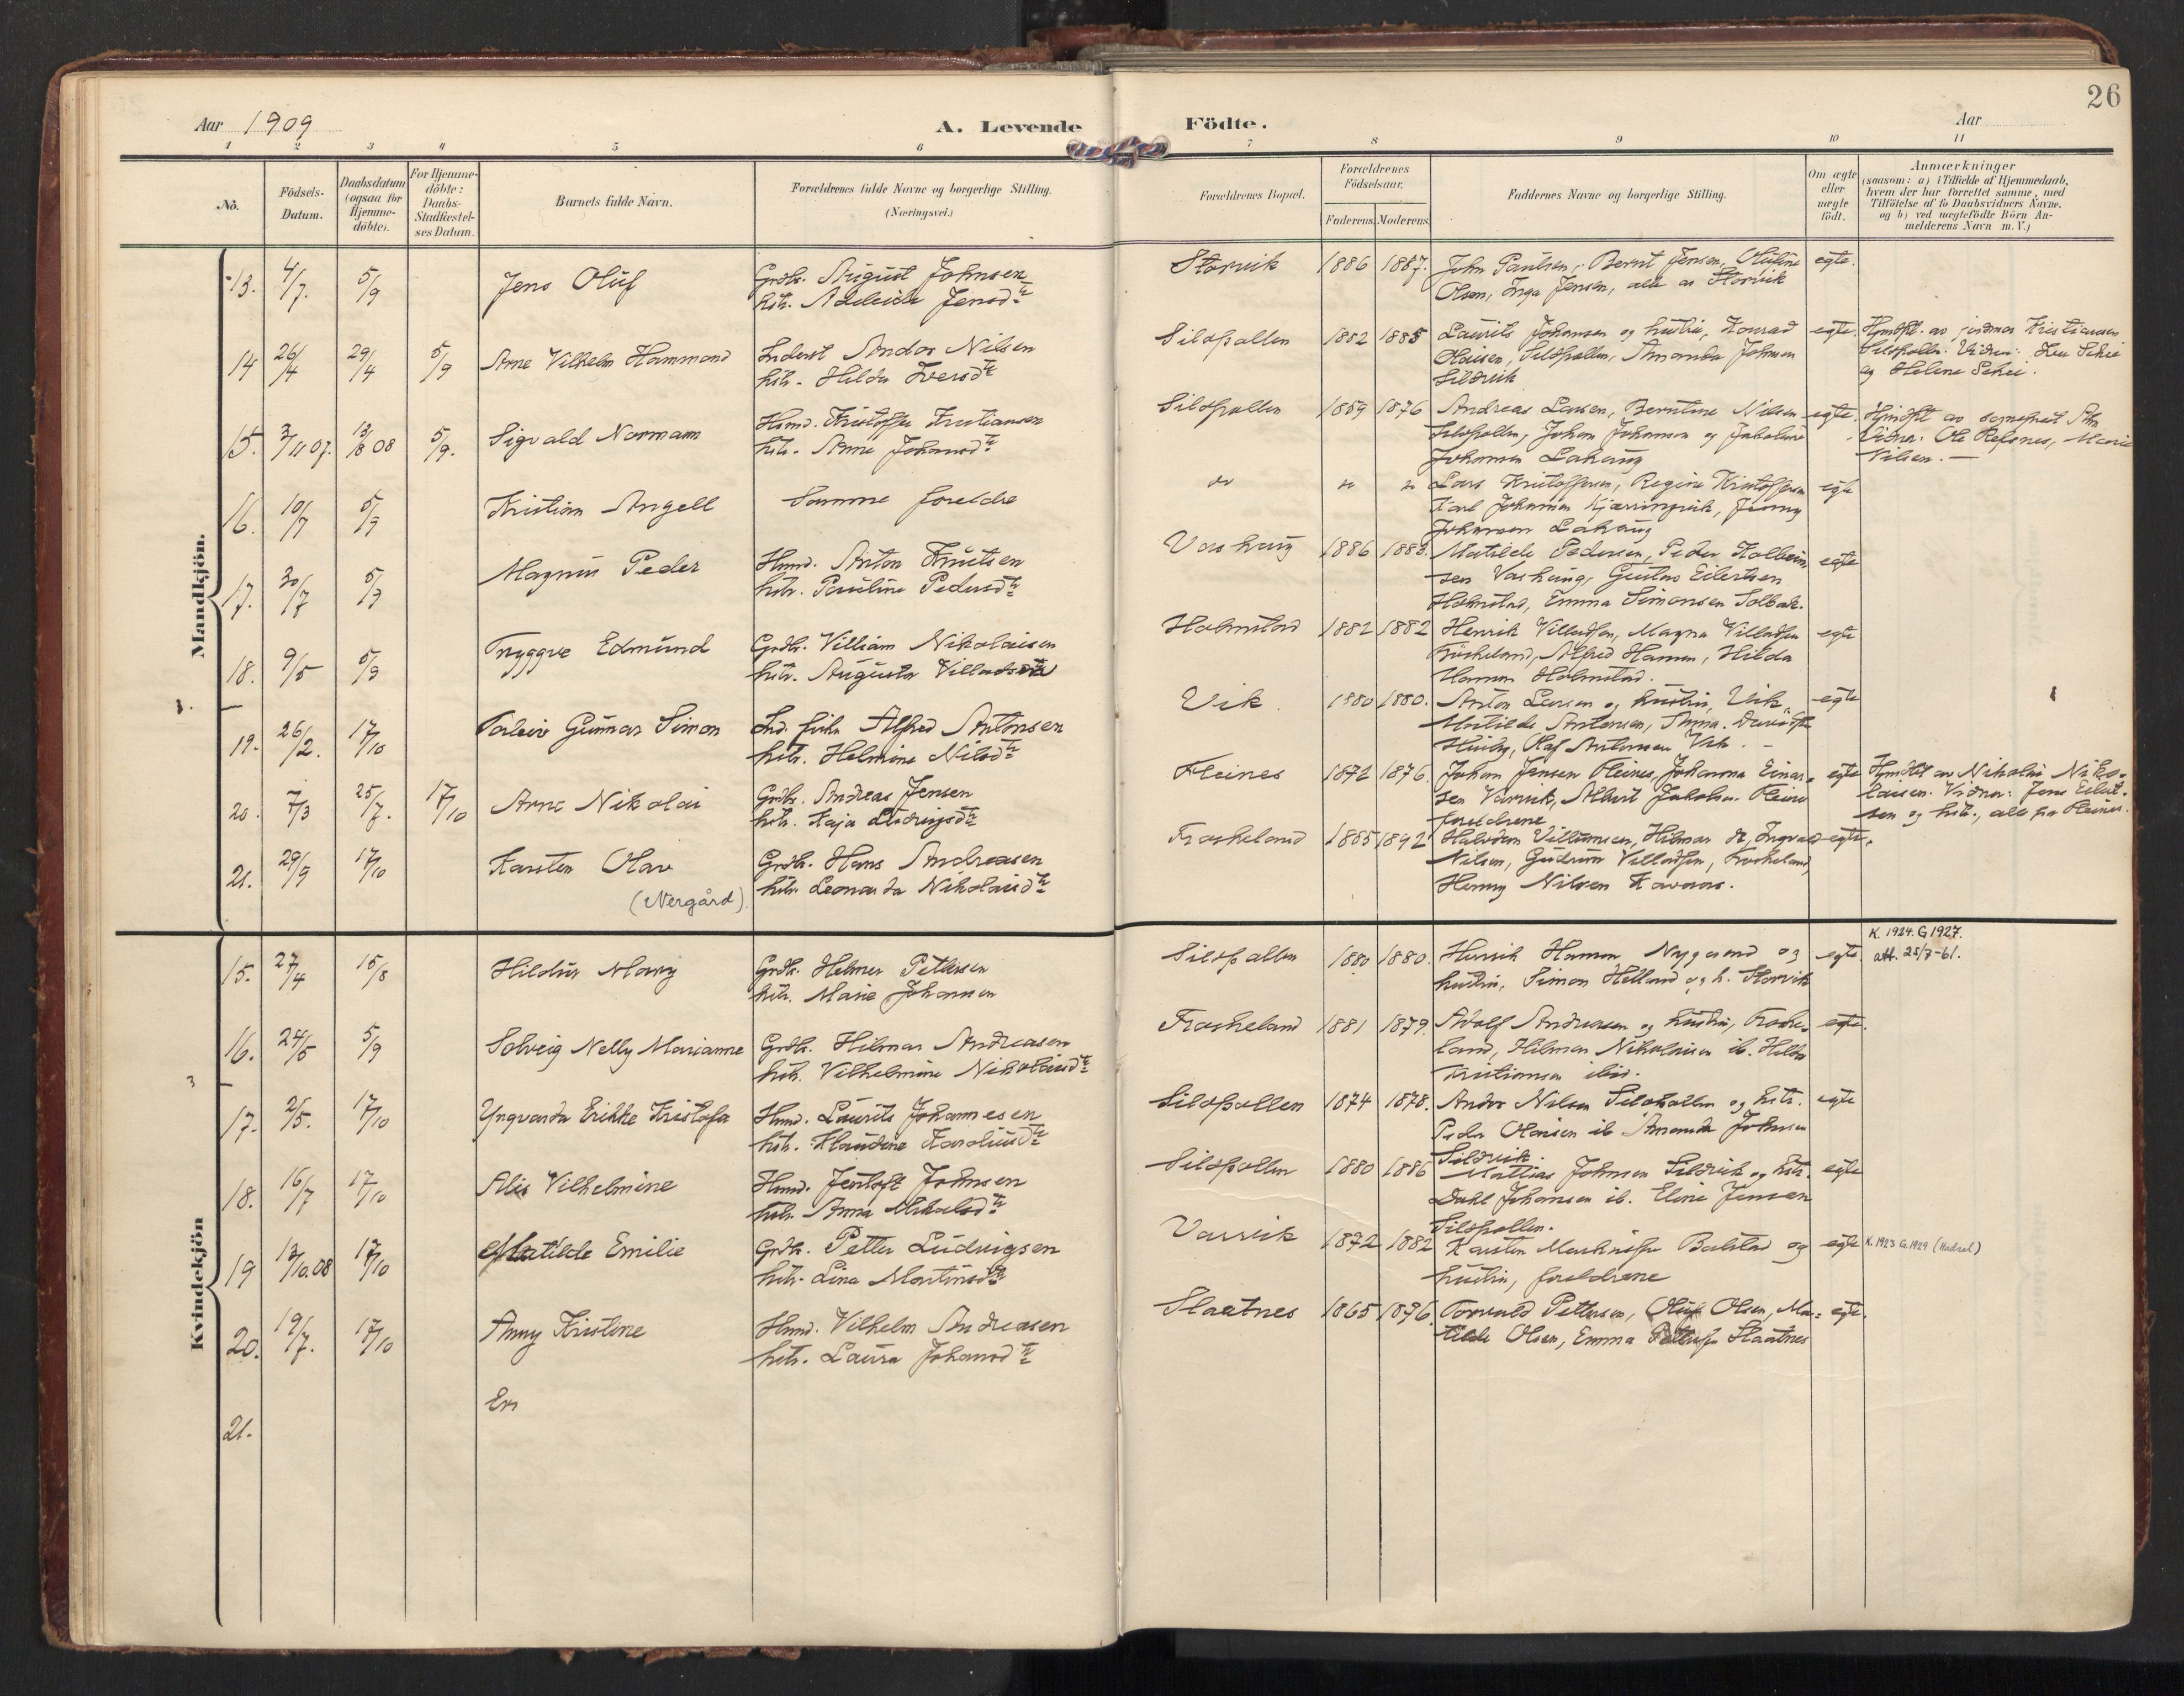 26
Aar 1909
A. Levende Födte.
Aar
1 2 3 4 5 6 7 8 9 10 11
No.
Födsels-Datum.
Daabsdatum (ogsaa for Hjemme-döbte).
For Hjemme-döbte: Daabs-Stadfæstel-ses Datum.
Barnets fulde Navn.
Forældrenes fulde Navne og borgerlige Stilling. (Næringsvei.)
Forældrenes Bopæl.
Forældrenes Födselsaar.
Faderens. Moderens.
Faddernes Navne og borgerlige Stilling.
Om ægte eller uægte födt.
Anmærkninger
(saasom: a) i Tilfælde af Hjemmedaab,
hvem der har forrettet samme, med
Tilföielse af to Daabsvidners Navne,
og b) ved uægtefödte Börn An-
melderens Navn m. V.)
Mandkjön.
13. 4/7. 5/9 Jens Oluf
Grdbr. August Johnsen
hstr. Adeleide Jensdtr
Storvik 1886 1887.
John Paulsen, Bernt Jensen, Oluline
Olsen, Inga Jensen, alle av Storvik
egte.
14 26/4 29/4 5/9 Arne Vilhelm Hammond
Inderst Andor Nilsen
hstr. Hilda Iversdtr
Sildpollen 1882 1885
Laurits Johansen og hustru, Konrad
Olaisen, Sildpollen, Amanda Johnsen
Sildvik
egte. Hjmdpt. av jordmor Kristiansen
Sildpolln. Vidner:
og Helene
15. 3/11 07. 13/8 08 5/9. Sigvald Normann
Hsmd. Kristoffer Kristiansen
hstr. Anne Johansdtr
Sildpollen 1859 1876
Andreas Larsen, Berntine Nilsen
Sildpollen, Johan Johansen og Jakobine
Johansen Lahaug
egte. Hjmdpt av sogneprest
Vidner: Ole Refsnes, Marie
Nilsen.
16. 10/7 5/9 Kristian Angell
Samme foreldre
Lars Kristoffersen, Regine Kristoffersen
Karl Johansen Kjærringvik, Jenny
Johansen Lahaug
egte
17. 30/7 5/9 Magnus Peder
Hsmd. Anton Knutsen
hstr. Pauline Pedersdtr
Vashaug 1886 1883.
Matilde Pedersen, Peder Kolbein-
sen Vashaug, Gustav Eilertsen
Holmstad, Emma Simonsen Solbak.
egte
18. 9/5 5/9 Tryggve Edmund
Grdbr. Villiam Nikolaisen
hstr. Augusta Villadsdtr
Holmstad 1882 1882
Henrik Villadsen, Magna Villadsen
Froskeland, Alfred Hansen, Hilda
Hansen Holmstad.
egte
19. 26/2. 17/10 Torleiv Gunnar Simon
Ind. fisker Alfred Antonsen
hstr. Helmine Nilsdtr
Vik. 1880 1880.
Anton Larsen og hustru, Vik,
Matilde Antonsen, Anna
Olaf Antonsen Vik.
egte
20. 7/3 25/7. 17/10 Arne Nikolai
Grdbr. Andreas Jensen
hstr. Kaja Ludvigsdtr
Fleines 1872 1876.
Johan Jensen Fleines, Johanna Einar-
sen Varvik, Albert Jakobsen Fleines
foreldrene
egte Hjmdpt av Nikolai Niko-
laisen. Vidner: Jens Eilert-
sen og hstr., alle fra Fleines.
21. 29/9 17/10 Karsten Olav
(Nergård).
Grdbr. Hans Andreasen
hstr. Leonarda Nikolaisdtr
Froskeland 1885 1892
Halvdan Villumsen, Hilmar A, Ingvald
Nilsen, Gudrun Villadsen, Froskeland,
Henny Nilsen Kavaas.
egte.
Kvindekjön
15. 27/4 15/8 Hildur Mary
Grdbr. Helmer Pettersen
hstr. Marie Johansen
Sildpollen 1880 1880.
Henrik Hansen Nygaard og
hustru, Simon Helland og h. Storvik
egte.
K. 1924. G 1927.
att. 25/7-61.
16. 24/5 5/9 Solveig Nelly Marianne
Grdbr. Hilmar Andreasen
hstr. Vilhelmine Nikolaisdtr
Froskeland 1881 1879.
Adolf Andreasen og hustru, Froske-
land, Hilman Nikolaisen ib. Hilda
Kristiansen ibid.
egte.
17. 2/5. 17/10 Yngvarda Erikke Kristofa
Hsmd. Laurits Johannesen
hstr. Klaudine Karoliusdtr
Sildpollen 1874 1878.
Andor Nilsen Sildpollen og hstr.
Peder Olaisen ib Amanda Johnsen
Sildvik.
egte
18. 16/7 17/10 Alis Vilhelmine
Hsmd. Jentoft Johnsen
hstr. Anna Mikalsdtr
Sildpollen 1880 1886
Mattias Johnsen Sildvik og hstr.
Dahl Johansen ib. Eline Jensen
Sildpollen.
egte
19 13/10.08 17/10 Matilde Emilie
Grdbr. Petter Ludvigsen
hstr. Lina Martinsdtr
Varvik 1872 1882
Karsten Markussen Balstad og
hustru, foreldrene
egte K. 1923 G. 1929 (Hadsel)
20. 19/7. 17/10 Anny Kristine
Hsmd. Vilhelm Andreasen
hstr. Laura Johansdtr
Slaatnes 1865 1876.
Torvald Pettersen, Oluf Olsen, Ma-
tilde Olsen, Emma Pettersen Slaatnes
egte.
21. En